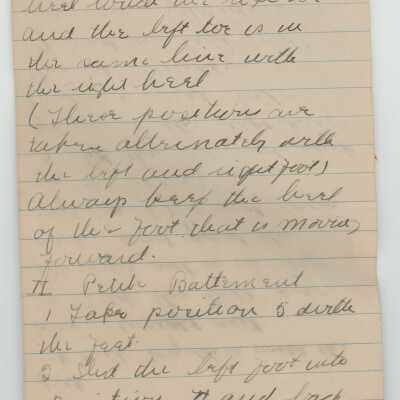 heel touch the right toe
and the left toe is in
the same line with
the right heel
(These positions are
taken alternately with
the left and right foot)
Always keep the heel
of the foot that is moving
forward.
II Petit Battement
1 Take position 5 with
the feet.
2 Slid the left foot into
position II and back